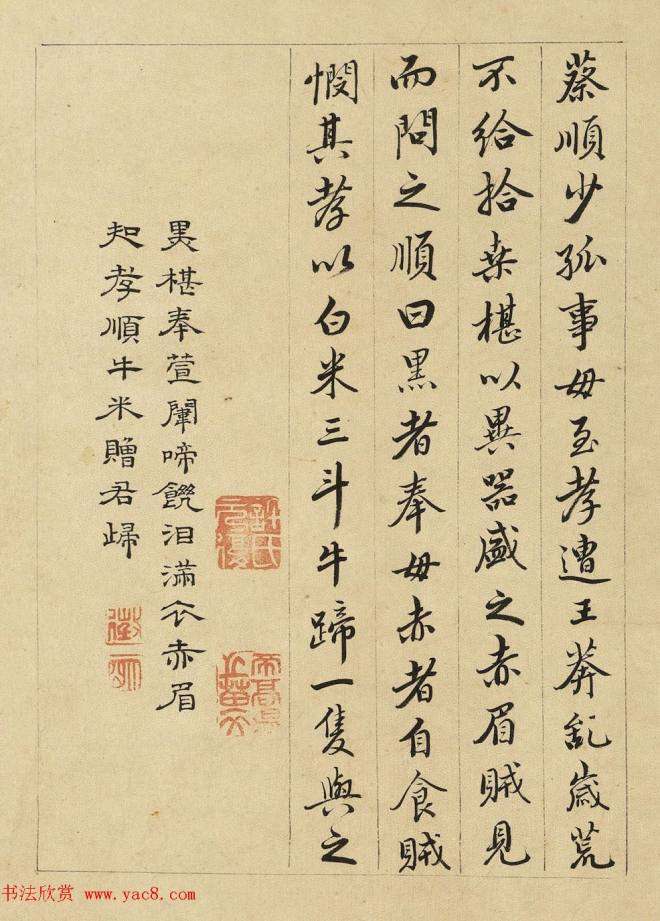 蔡順少孤事母至孝遭王莽亂歲荒
不給拾桒椹以異器盛之赤眉賊見
而問之順曰黑者奉母赤者自食賊
憫其孝以白米三斗牛蹄一隻與之
黑椹奉萱闈啼飢泪滿衣赤眉
知孝順牛米贈君歸
书法欣赏 www.yac8.com